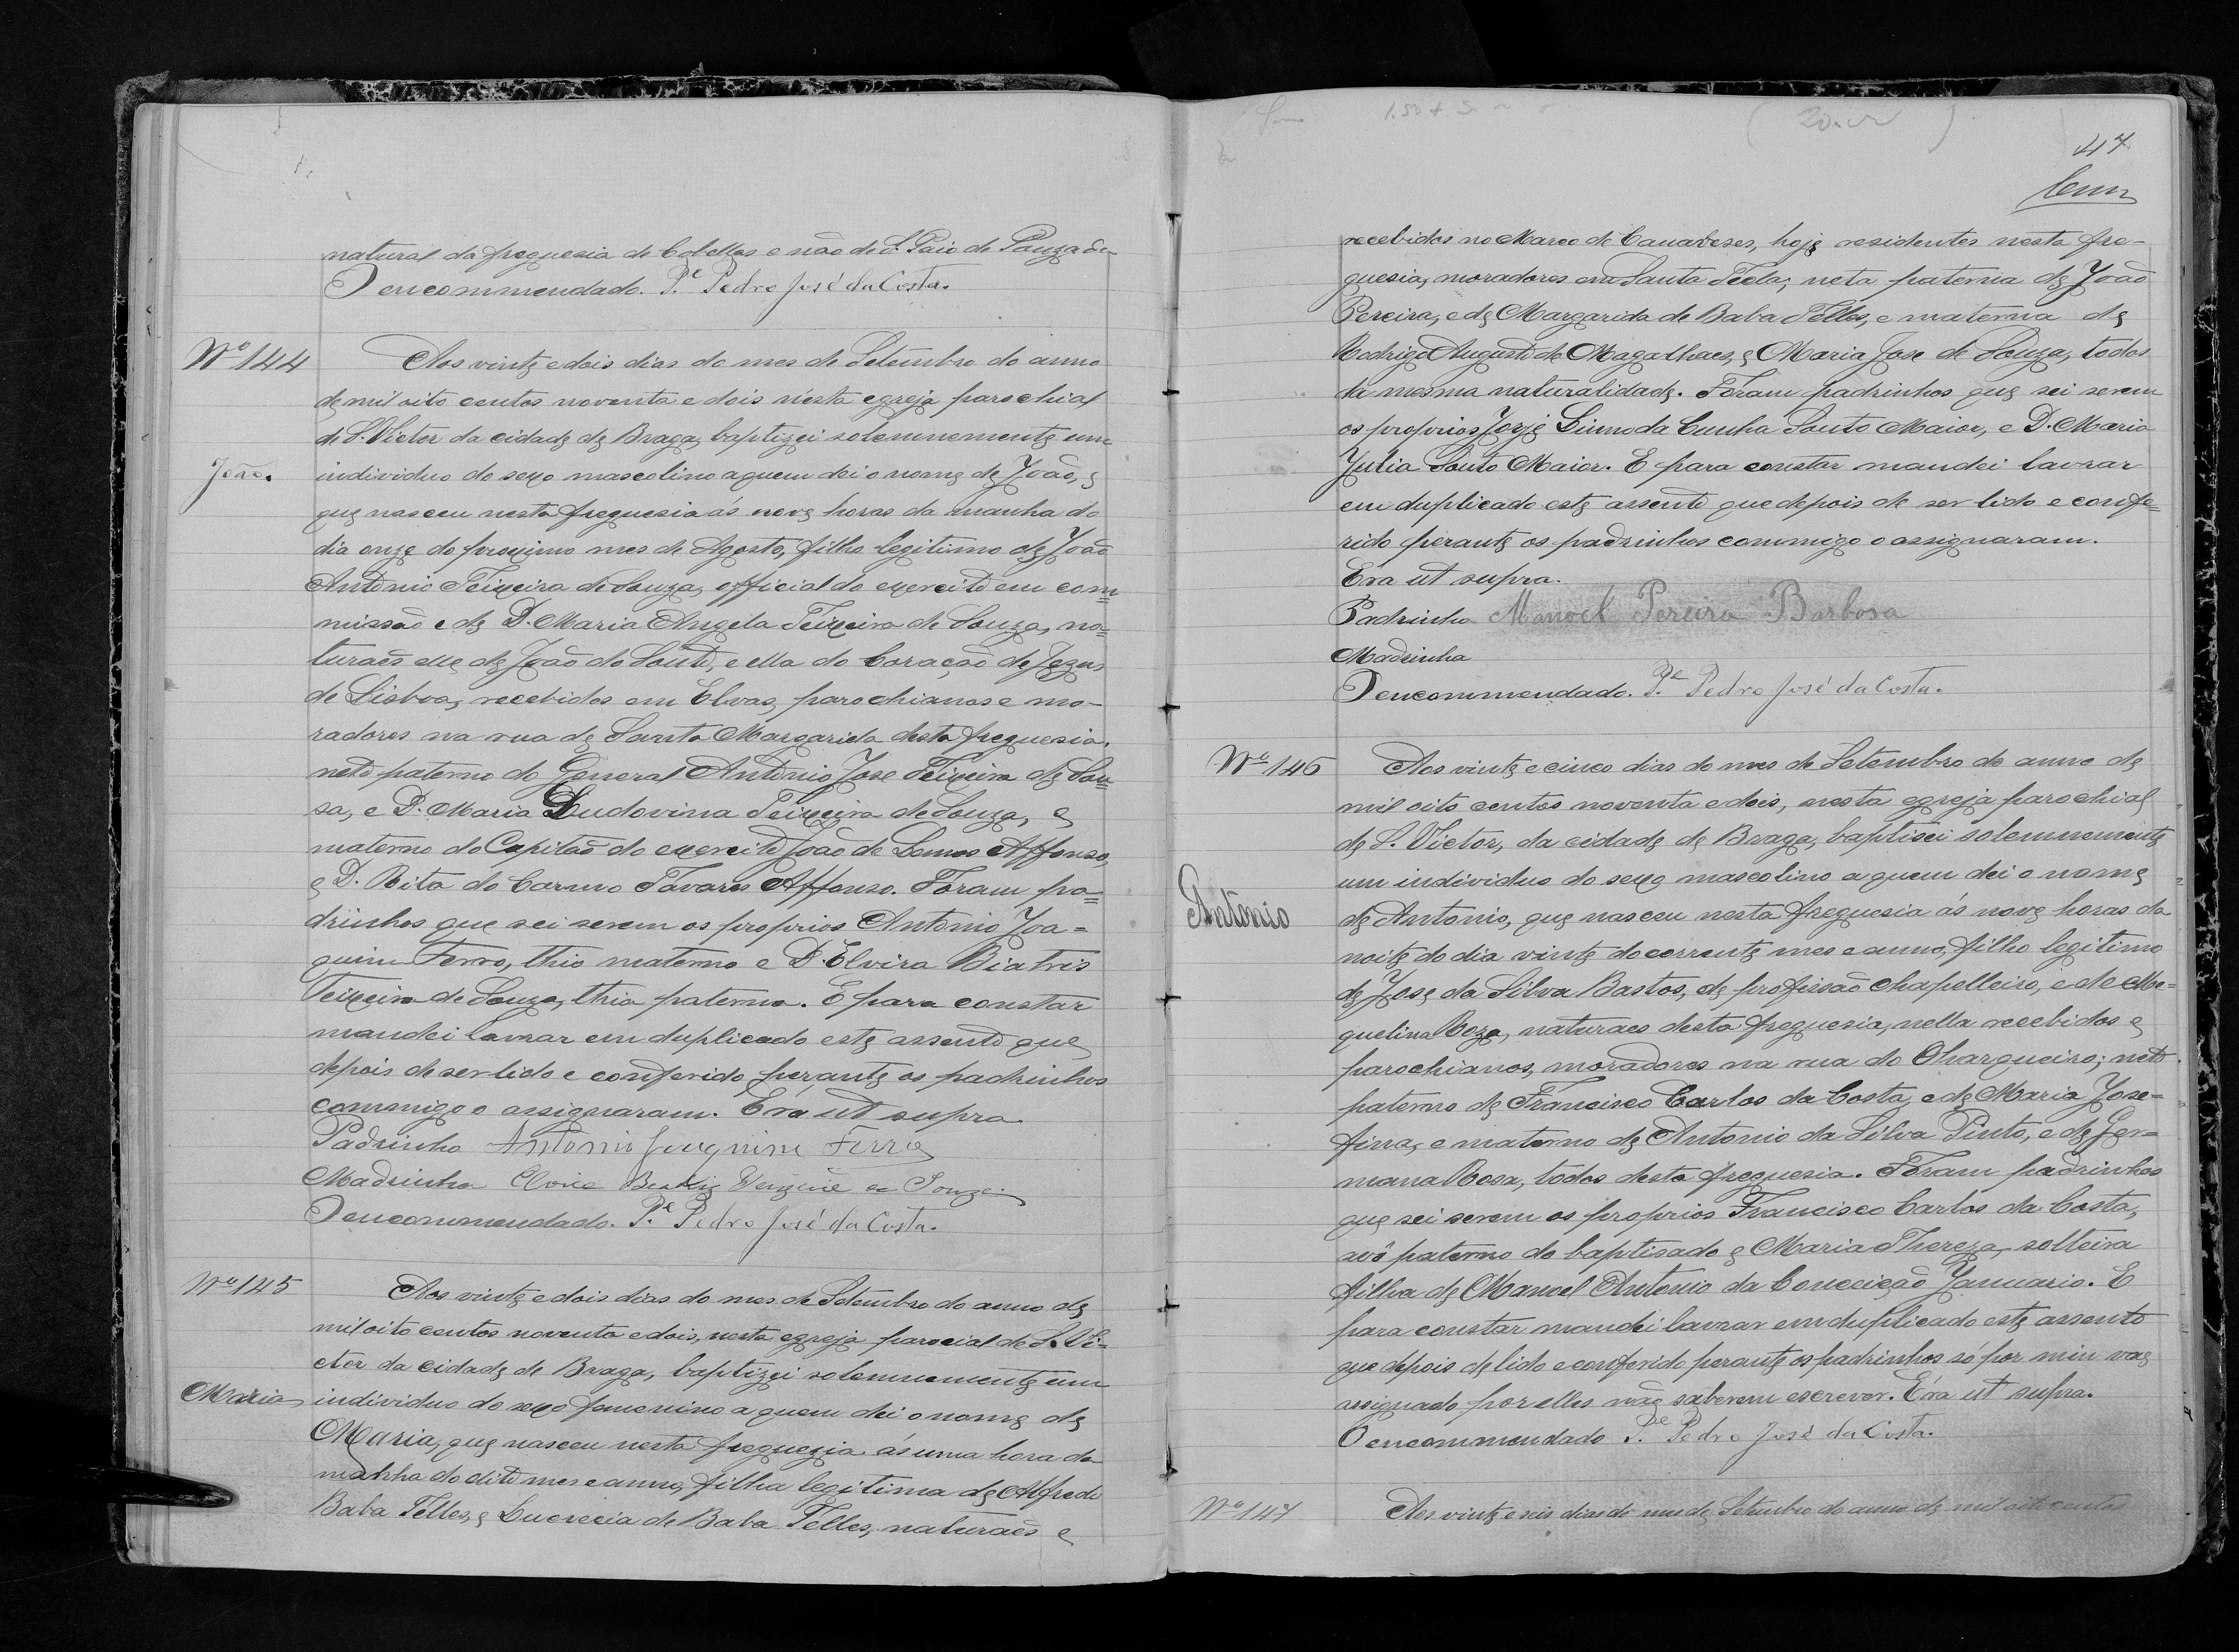 natural da freguesia de Cabellas e não de S. Paio de Pouzada
O encommendado. P.e Pedro José da Costa.
Nº 144
Aos vinte e dois dias do mes de Setembro do anno
de mil oito centos noventa e dois n'esta egreja parochial
de S. Victor da cidade de Braga, baptizei solemnemente um
João.
individuo do sexo mascolino a quem dei o nome de João, e
que nasceu nesta freguesia ás nove horas da manha do
dia onze do proximo mes de Agosto, filho legitimo de João
Antonio Teixeira de Souza, official do exercito em com=
missão e de D. Maria Angela Teixeira de Souza, na=
turaes elle de João do Souto, e ella do Coração de Jezus
de Lisboa, recebidos em Elvas, parochianos e mo-
radores na rua de Santa Margarida desta freguesia.
neto paterno do General Antonio Jose Teixeira de Sou=
sa, e D. Maria Ludovina Teixeira de Souza, e
materno do Capitão do exercito João de Lemos Affonso,
e D. Rita do Carmo Tavares Affonso. Foram pa=
drinhos que sei serem os proprios Antonio Joa=
quim Ferro, thio materno e D. Elvira Biatris
Teixeira de Souza, thia paterna. E para constar
mandei lavrar em duplicado este assento que
depois de ser lido e conferido perante os padrinhos
commigo o assignaram. Era ut supra
Padrinho Antonio Joaquim Ferro
Madrinha Beatriz Teixeira de Souza
O encommendado. P.e Pedro José da Costa.
Nº 145
Aos vinte e dois dias do mes de Setembro do anno de
mil oito centos noventa e dois, nesta egreja parocial de S. Vi=
ctor da cidade de Braga, baptizei solemnemente um
Maria
individuo do sexo femenino a quem dei o nome de
Maria, que nasceu nesta freguezia ás uma hora da
manhha do dito mes e anno, filha legitima de Alfredo
Baba Telles, e Lucrecia de Baba Telles, naturaes e
47
recebidos no Marco de Canavezes, hoje residentes nesta fre-
guesia, moradores em Santa Tecla; neta paterna de João
Pereira, e de Margarida de Baba Telles, e materna de
Rodrigo Augusto de Magalhaes, e Maria Jose de Souza, todos
da mesma naturalidade. Foram padrinhos que sei serem
os proprios Jorje da Cunha Souto Maior, e D. Maria
Julia Souto Maior. E para constar mandei lavrar
em duplicado este assento que depois de ser lido e confe=
rido perante os padrinhos commigo o assignaram.
Era ut supra.
Padrinho Manoel Pereira Barbosa
Madrinha
O encommendado. P.e Pedro José da Costa.
Nº 146
Aos vinte e cinco dias do mes de Setembro do anno de
mil oito centos noventa e dois, nesta egreja parochial
de S. Victor, da cidade de Braga, baptisei solemnemente
um individuo do sexo mascolino a quem dei o nome
Antonio
de Antonio, que nasceu nesta freguesia ás nove horas da
noite do dia vinte do corrente mes e anno, filho legitimo
de Jose da Silva Bastos, de profissão chapelleiro, e de Me=
quelina Roza, naturaes desta freguesia, nella recebidos e
parochianos, moradores na rua do Charqueiro; neto
paterno de Francisco Carlos da Costa, e de Maria Jose=
fina, e materno de Antonio da Silva Pinto, e de Ger=
mana Rosa, todos desta freguesia. Foram padrinhos
que sei serem os proprios Francisco Carlos da Costa,
avô paterno do baptisado e Maria Thereza, solteira
filha de Manoel Antonio da Conceição Januario. E
para constar mandei lavrar em duplicado este assento
que depois de lido e conferido perante os padrinhos só por mim vae
assignado por elles não saberem escrever. Era ut supra.
O encommendado P.e Pedro José da Costa.
Nº 147
Aos vinte e seis dias do mes de Setembro do anno de mil oito centos